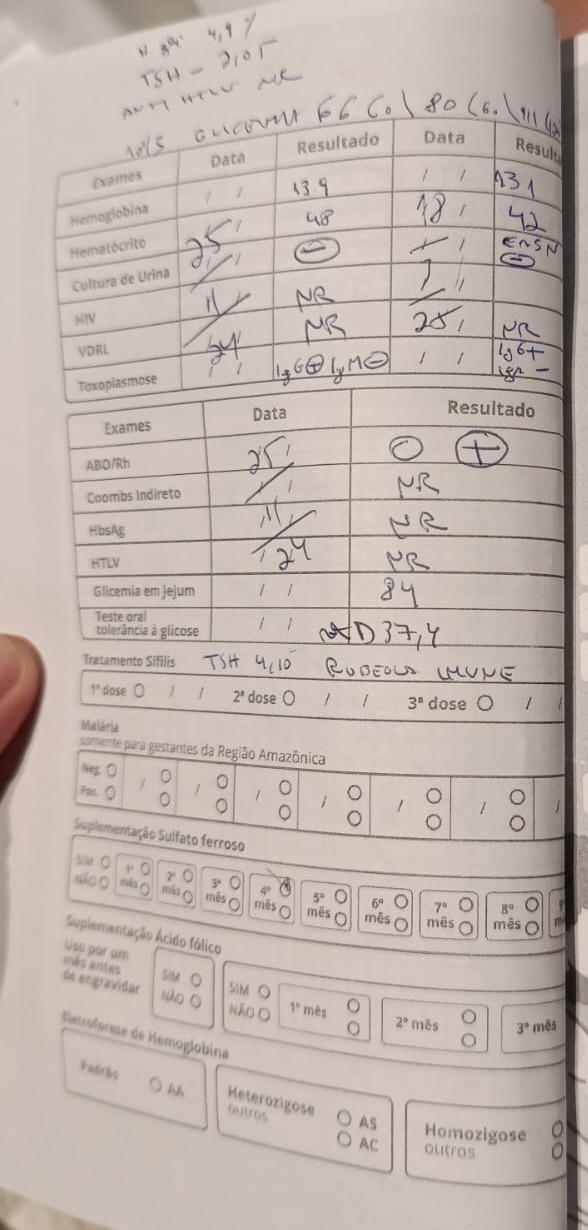 4,9 %
TSH - 2,05
ANTI HTLV NR
66 80
Exames Data Resultado Data
Hemoglobina / / 139 / / 131
Hematócrito 25 / 48 18 / 42
Cultura de Urina / / - /
HIV 11 / NR / /
VDRL 24 NR 25 / NR
Toxoplasmose / / IgG+ IgM- / / IgG+ IgM -
Exames Data Resultado
ABO/Rh 25 / O +
Coombs Indireto / / NR
HbsAg / 11 / NR
HTLV / 24 NR
Glicemia em jejum / / 84
Teste oral
tolerância à glicose / / D 37,4
Tratamento Sífilis TSH 4,10 RUBEOLA IMUNE
1ª dose / / 2ª dose / / 3ª dose / /
Malária
somente para gestantes da Região Amazônica
Neg. / / / / / / /
Pos.
Suplementação Sulfato ferroso
SIM 1º 2º 3º 4º 5º 6º 7º 8º
NÃO mês mês mês mês mês mês mês mês
Suplementação Ácido fólico
Uso por um
mês antes
de engravidar
SIM
NÃO
SIM
NÃO
1º mês 2º mês 3º mês
Eletroforese de Hemoglobina
Padrão AA
Heterozigose AS
outros AC
Homozigose
outros